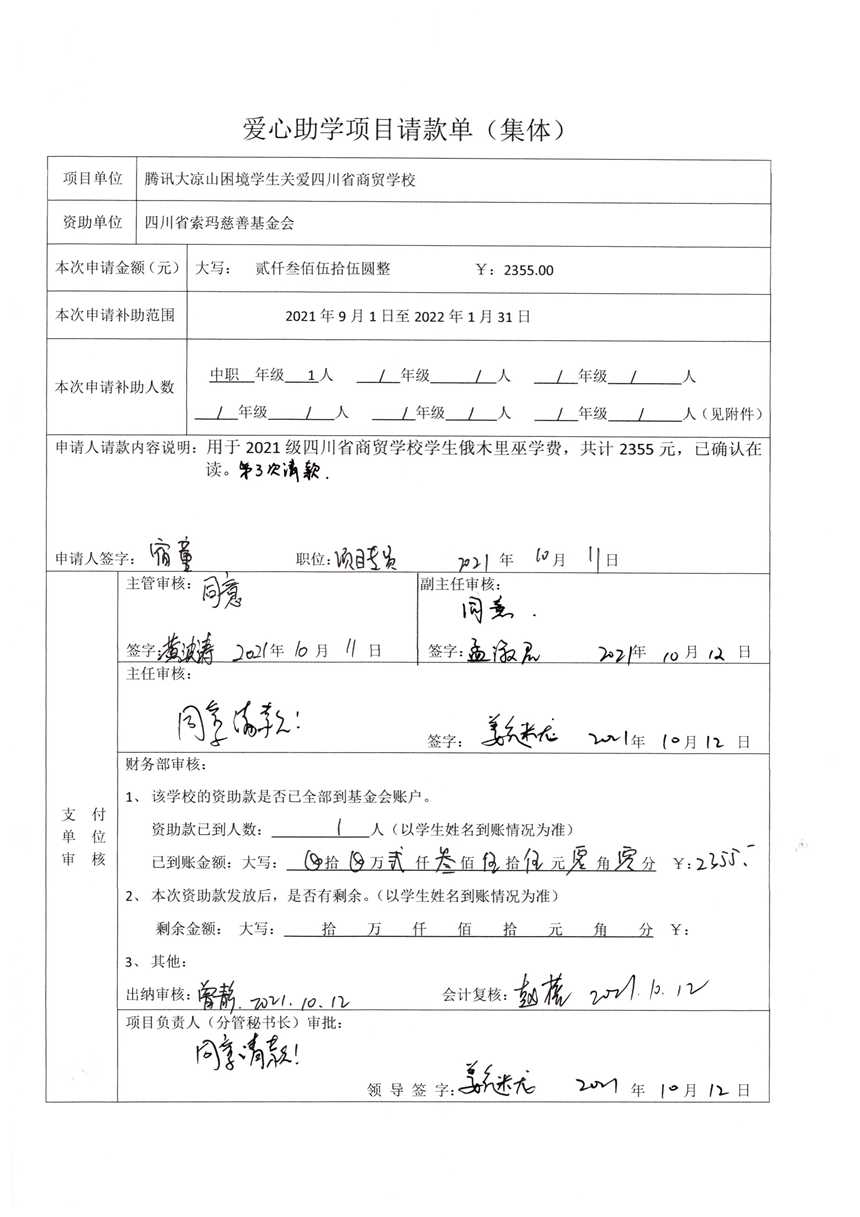 爱心助学项目请款单（集体）
项目单位 腾讯大凉山困境学生关爱四川省商贸学校
资助单位 四川省索玛慈善基金会
本次申请金额（元） 大写： 贰仟叁佰伍拾伍圆整 ￥：2355.00
本次申请补助范围 2021年9月1日至2022年1月31日
本次申请补助人数
中职 年级 1 人 / 年级 / 人 / 年级 / 人
/ 年级 / 人 / 年级 / 人 / 年级 / 人（见附件）
申请人请款内容说明：用于2021级四川省商贸学校学生俄木里巫学费，共计2355元，已确认在
读。第3次请款.
申请人签字： 宿童 职位：项目专员 2021 年 10 月 11 日
支付
单位
审核
主管审核：同意 副主任审核：
同意.
签字：黄波涛 2021年 10 月 11 日 签字：孟淑君 2021年 10 月 12 日
主任审核：
同意请款！
签字： 2021年 10月 12 日
财务部审核：
1、 该学校的资助款是否已全部到基金会账户。
资助款已到人数： 1 人（以学生姓名到账情况为准）
已到账金额：大写： 拾 万 贰 仟 叁 佰 伍 拾 伍 元 零 角 零 分 ￥：2355.-
2、 本次资助款发放后，是否有剩余。（以学生姓名到账情况为准）
剩余金额： 大写： 拾 万 仟 佰 拾 元 角 分 ￥：
3、 其他：
出纳审核：曾静. 2021.10.12 会计复核： 2021.10.12
项目负责人（分管秘书长）审批：
同意请款！
领导签字： 2021 年 10月 12 日